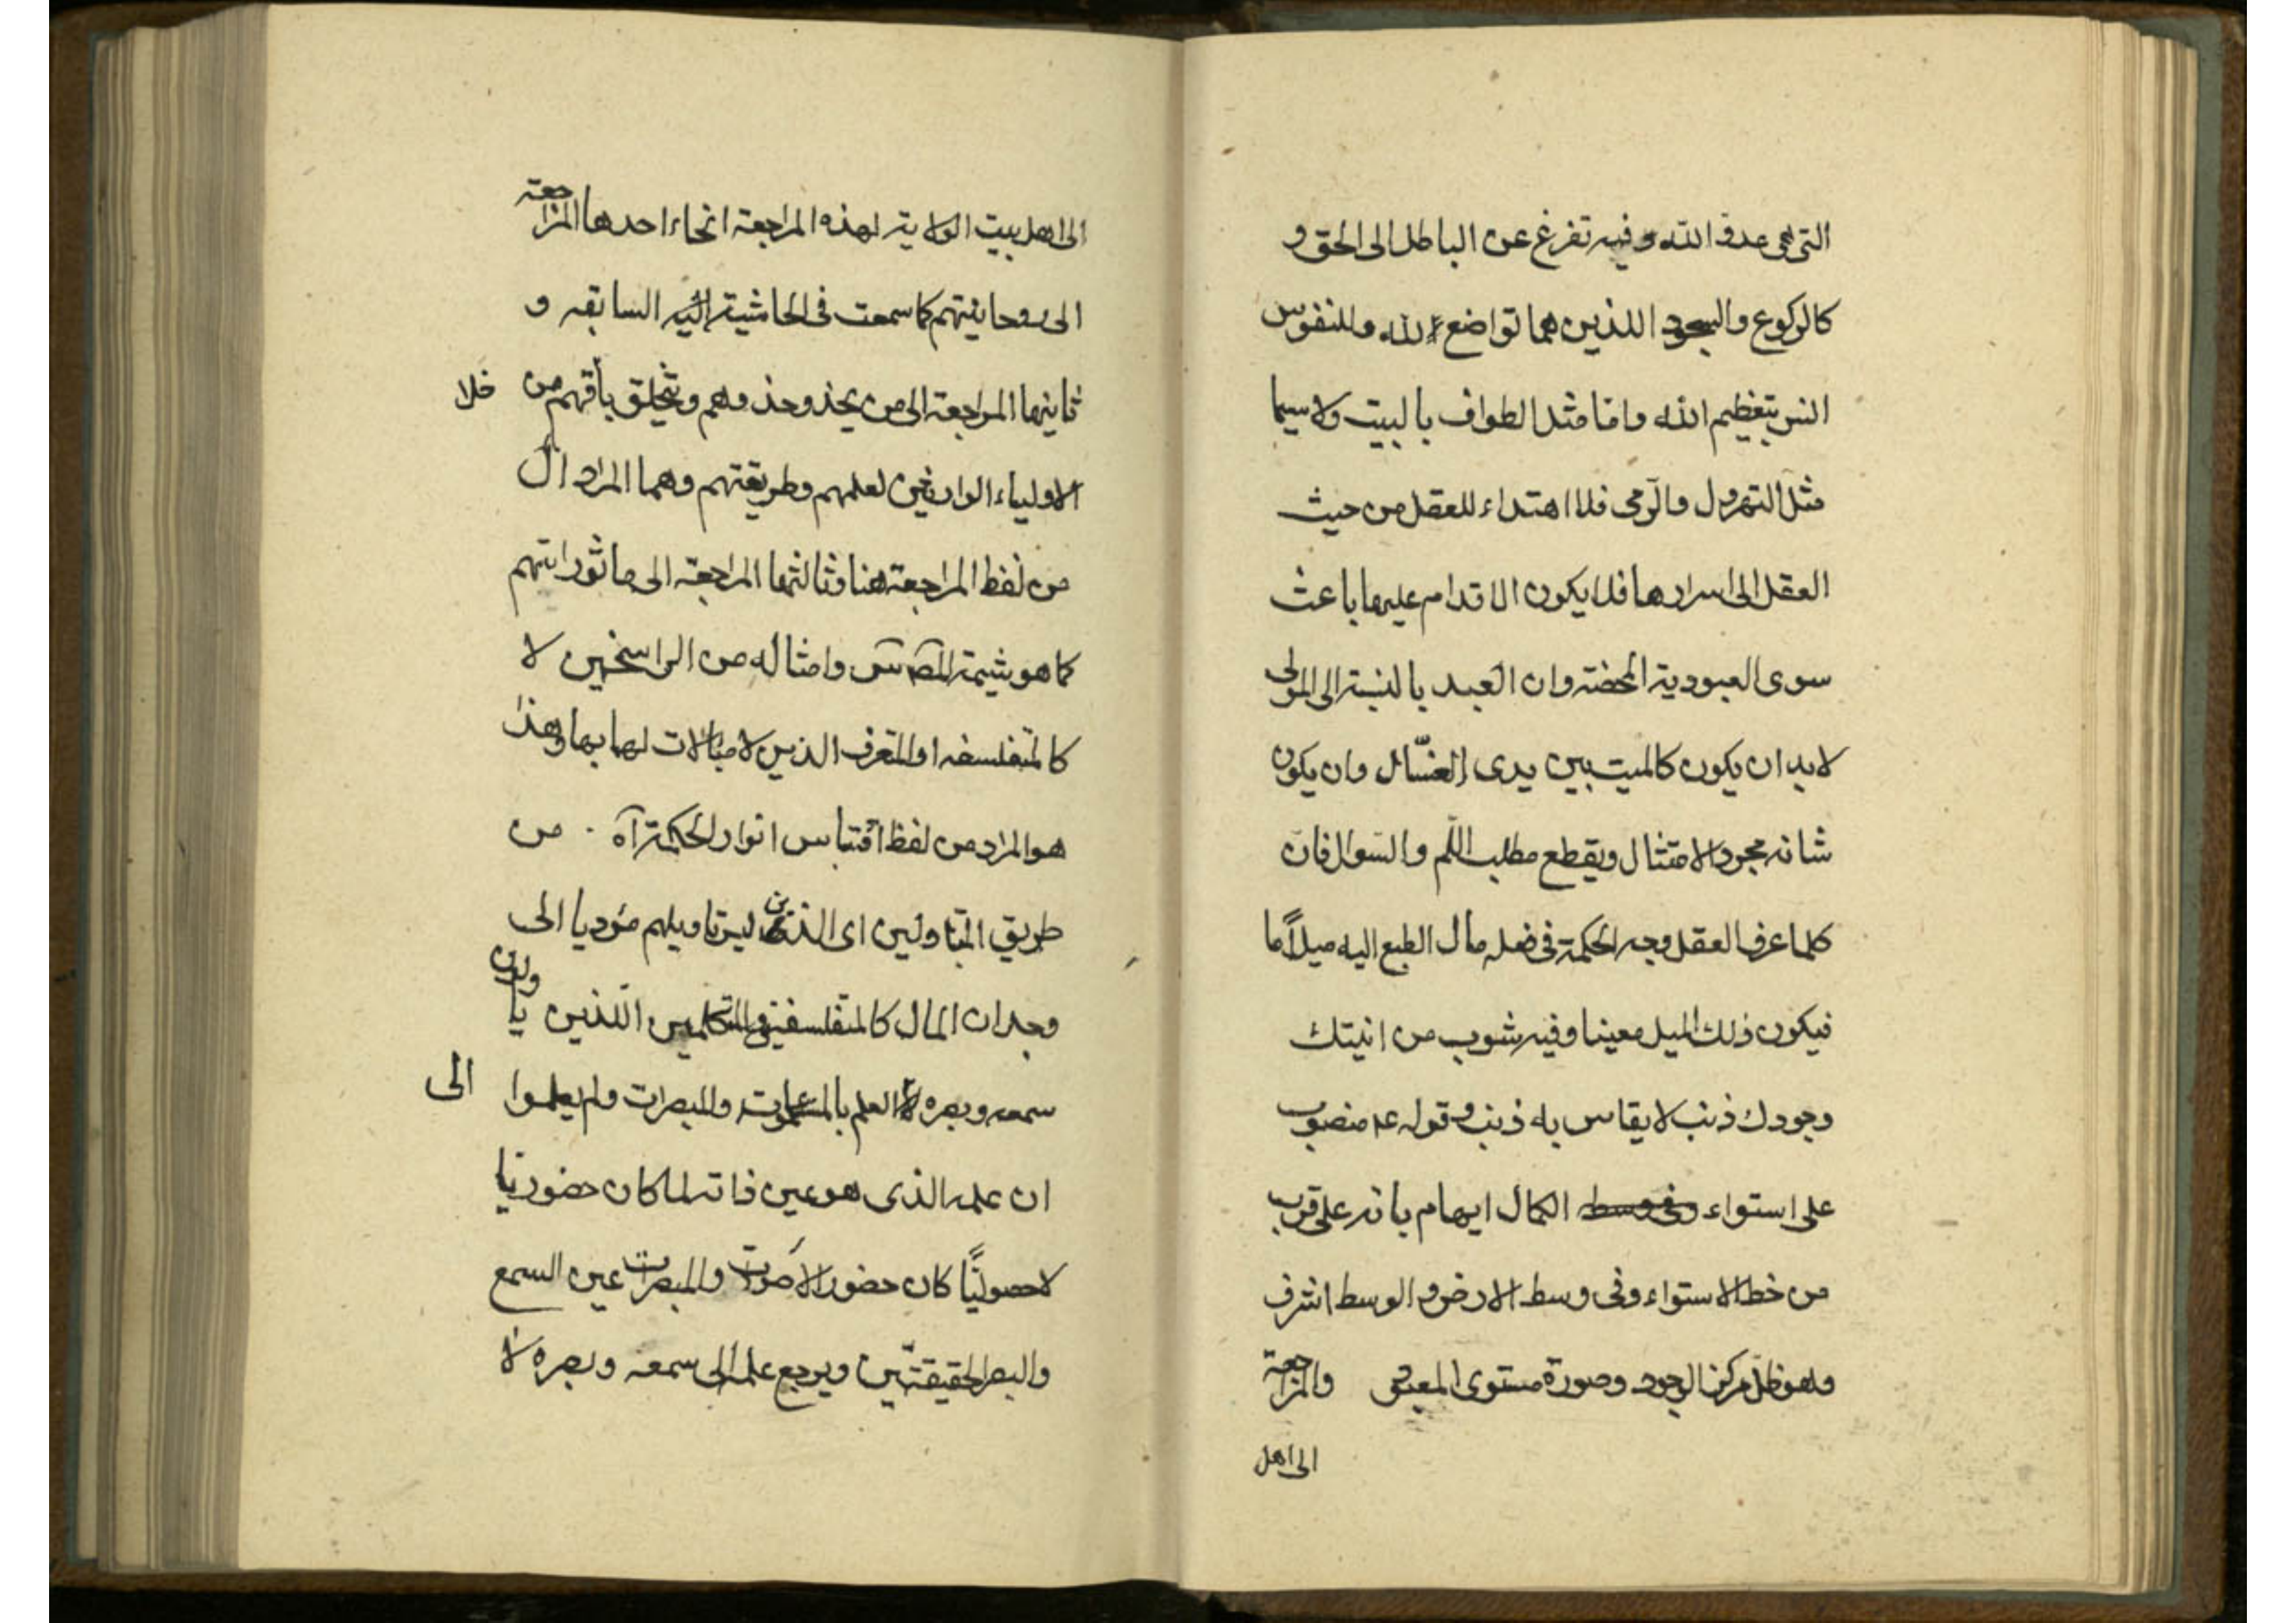 التى هى عدو الله وفيه تفرغ عن الباطل الى الحق و
كالركوع والسجود اللذين هما تواضع لله وللنفوس
انس بتعظيم الله وامّا مثل الطواف بالبيت ولا سيما
مثل التهرول والرّمى فلا اهتداء للعقل من حيث
العقل الى اسرارها فلا يكون الاقدام عليها باعث
سوى العبودية المحضة وان العبد بالنسبة الى المولى
لابد ان يكون كالميت بين يدى الغسّال وان يكون
شانه مجرد الامتثال ويقطع مطلب اللّم والسّوال فان
كلما عرف العقل وجه الحكمة فى فعله مال الطبع اليه ميلاً ما
فيكون ذلك الميل معينا وفيه شوب من انيتك
وجودك ذنب لا يقاس به ذنب و قوله ع منصوب
على استواء الكمال ايهام بانه على قرب
من خط الاستواء وفى وسط الارض والوسط اشرف
وهو ظلّ مركز الوجود وصورة مستوى المعبود والمراجعة
الى اهل
الى اهل بيت الولاية لهذه المراجعة انحاء احدها المراجعة
الى روحانيتهم كما سمعت فى الحاشية السابقه و
ثانيها المراجعة الى من يحذو حذوهم ويتخلق باخلاقهم من
الاولياء الوارثين لعلمهم وطريقتهم وهما المراد ان
من لفظ المراجعة هنا وثالثها المراجعة الى ماثوراتهم
كما هو شيمة المصـ س وامثاله من الراسخين لا
كالمتفلسفه او المتعرف الذين لا مبالات لهما بها وهذا
هو المراد من لفظ اقتباس انوار الحكمة آه . من
طريق المتاولين اى الذين ليس تاويلهم مؤديا الى
وجدان المال كالمتفلسفين والمتكلمين الّذين ياولون
سمعه وبصره الى العلم بالمسموعات والمبصرات ولم يعلموا
ان علمه الذى هو عين ذاته لما كان حضوريّا
لا حصوليًّا كان حضور الاصوات والمبصرات عين السمع
والبصر الحقيقتين ويرجع علمه الى سمعه وبصره لا